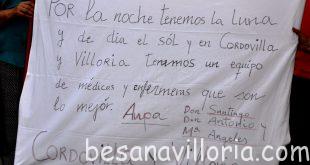 Por la noche tenemos la Luna
y de dia el sól y en Cordovilla
y Villoria tenemos un equipo
de médicos y enfermeras que son
lo mejor. Aupa
Don Santiago
Don Antonio y
Mª Angeles
besanavilloria.com